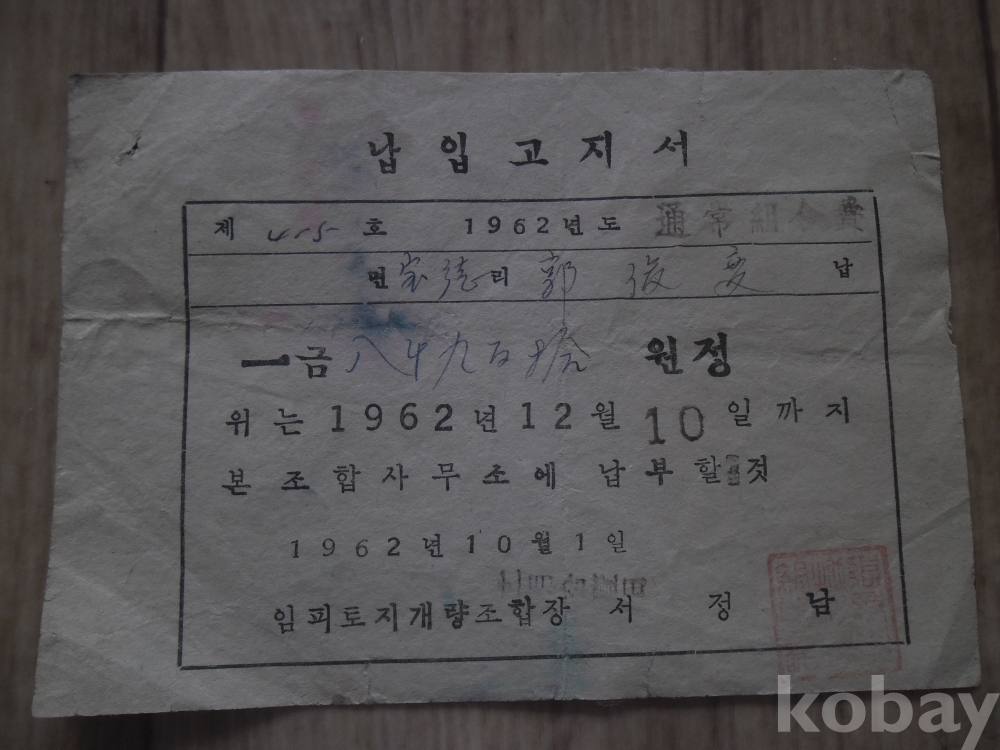 납입고지서
제 45 호 1962년도 通常組合費
면 宝德 리 郭 俊 변 납
一금 八千九百拾 원정
위는 1962년 12월 10일까지
본조합사무소에 납부할것
1962년 10월 1일
임피토지개량조합장 서 정 납
kobay